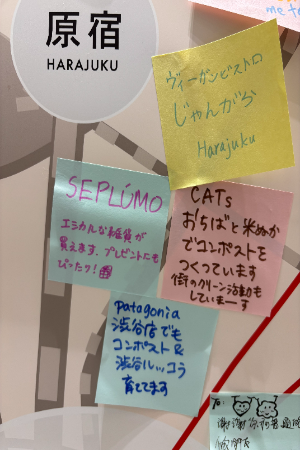 原宿
HARAJUKU
me to
ヴィーガンビストロ
じゃんがら
Harajuku
SEPLÚMO
エシカルな雑貨が
買えます、プレゼントにも
ぴったり!
CATs
おちばと米ぬか
でコンポストを
つくっています
街のクリーン活動も
していまーす
patagonia
渋谷店でも
コンポスト&
渋谷ルッコラ
育ててます
To: